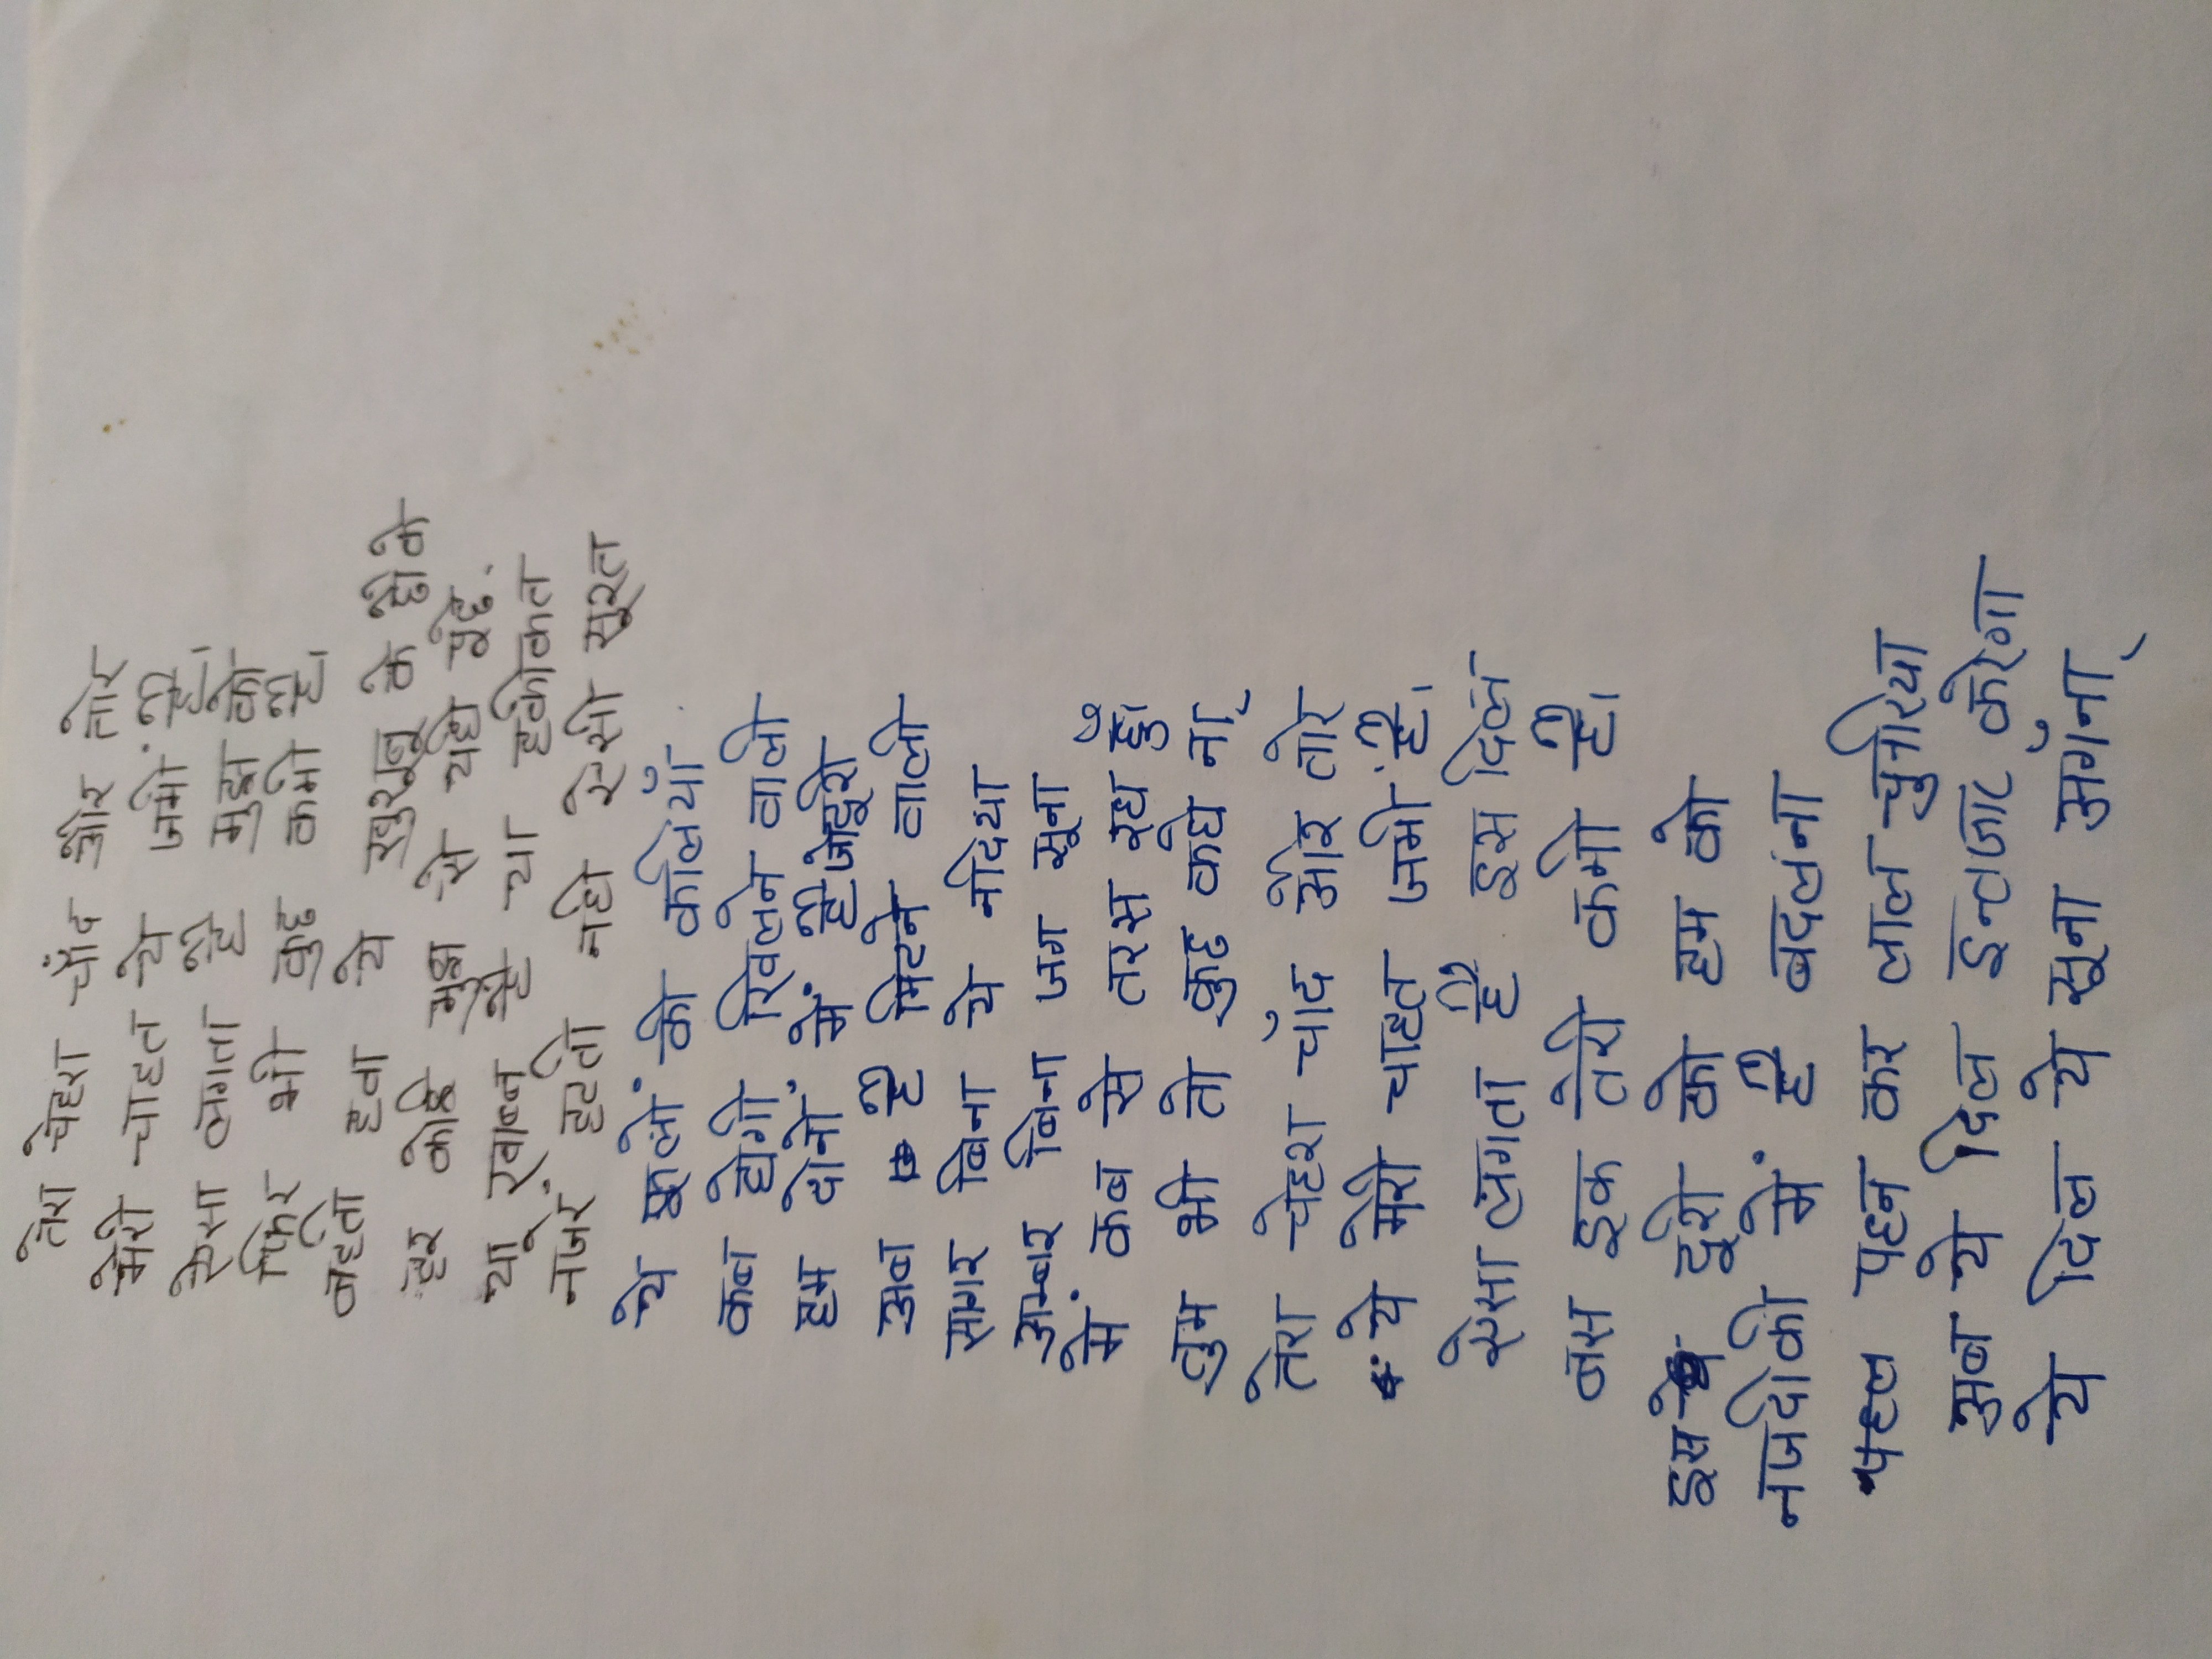 तेरा चेहरा चाँद और तोर
मेरी चाहत ये जमीं है।
ऐसा लगता है मुझ को
फिर भी कुछ कमी है।
बहता हवा ये खुशबू के होके
हर कोई मुझ से यही पूछे.
या ख्वाब है या हकीकत
नजरें हटती नही ऐसी सुरत
ये फूलों की कलियाँ
कब होगी खिलने वाली
हम दोनों में है जो दूरी
अब है मिटने वाली
सागर बिना ये नदिया
अम्बर बिना जग सूना
में कब से तरस रहा हुँ।
तुम भी तो कुछ कहो ना,
तेरा चेहरा चाँद और तोर
ये मेरी चाहत जमीं है।
ऐसा लगता है इस दिल
बस इक तेरी कमी है।
इस दूरी को हम को
नजदिकी में है बदलना
पहल पहन कर लाल चुनरिया
अब ये दिल इन्तजार करेगा
ये दिल ये सूना अँगना,